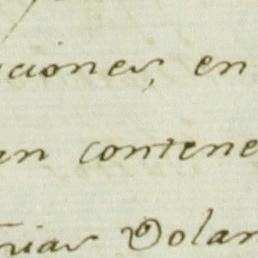 ciones, en
an contene
rias Dolar